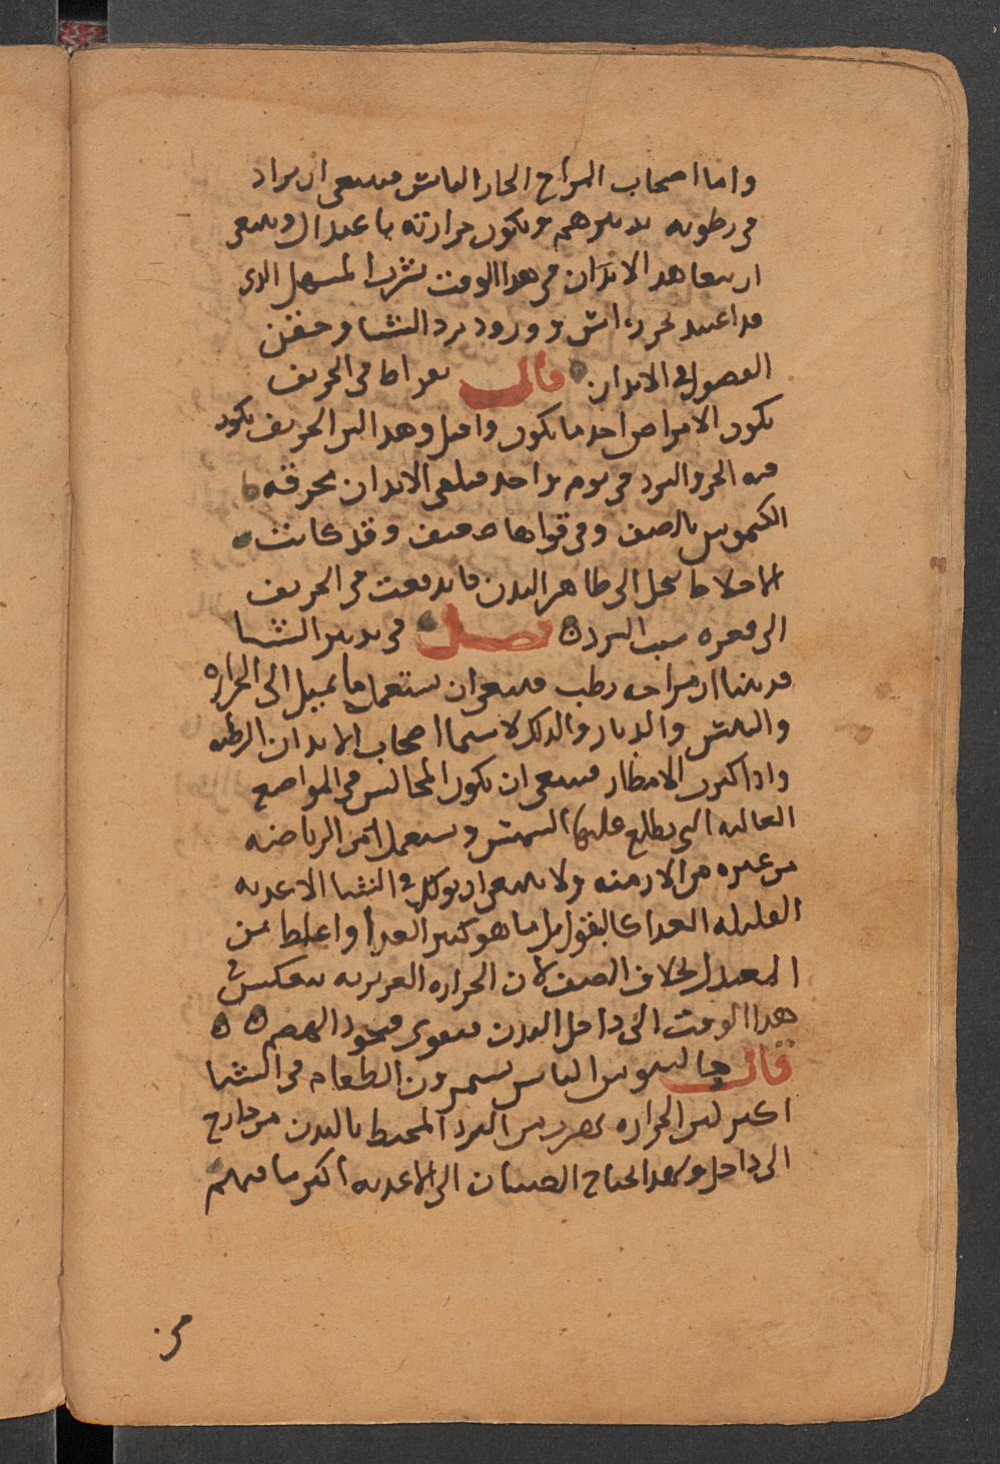 واما اصحاب المزاج الحار اليابس فينبغي ان يزاد
في رطوبه تدبيرهم ويكون حرارته باعتدال وينبغي
ان يتعاهد الابدان في هذا الوقت بشرب المسهل الذي
قد اعتيد وورود برد الشتا وحقن
الفضول في الابدان قال بقراط في الخريف
تكون الامراض احد ما تكون واقتل وهذا لان الخريف يكون
فيه الحر والبرد في يوم واحد فيلقى الابدان محرقه
الكيموس بالصيف وفي قواها ضعف وقد كانت
الاخلاط تنحل الى ظاهر البدن فاندفعت في الخريف
الى قعره سبب البرد فصل في تدبير الشتا
قد بينا ان مزاجه رطب فينبغي ان يستعمل ما يميل الى الحراره
واليبس والدثار والدلك لا سيما اصحاب الابدان الرطبه
واذا كثرت الامطار فينبغي ان يكون المجالس في المواضع
العاليه التي يطلع عليها الشمس ويستعمل اكثر الرياضه
من غيره من الازمنه ولا ينبغي ان يوكل في الشتا الاغذيه
القليله الغدا كالبقول بل ما هو كثير الغدا واغلظ من
المعتدل بخلاف الصيف لان الحراره الغريزيه تنعكس في
هذا الوقت الى داخل البدن فيقوى فيجود الهضم
قال جالينوس الناس يستمرون الطعام في الشتا
اكثر لان الحراره تهرب من البرد المحيط بالبدن من خارج
الى داخل ولهذا يحتاج الصبيان الى الاغذيه اكثر ما فيهم
من